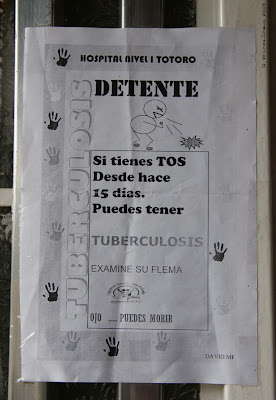 HOSPITAL NIVEL I TOTORO
DETENTE
TUBERCULOSIS
Si tienes TOS
Desde hace
15 días.
Puedes tener
TUBERCULOSIS
EXAMINE SU FLEMA
OJO .... PUEDES MORIR
DAVID MF